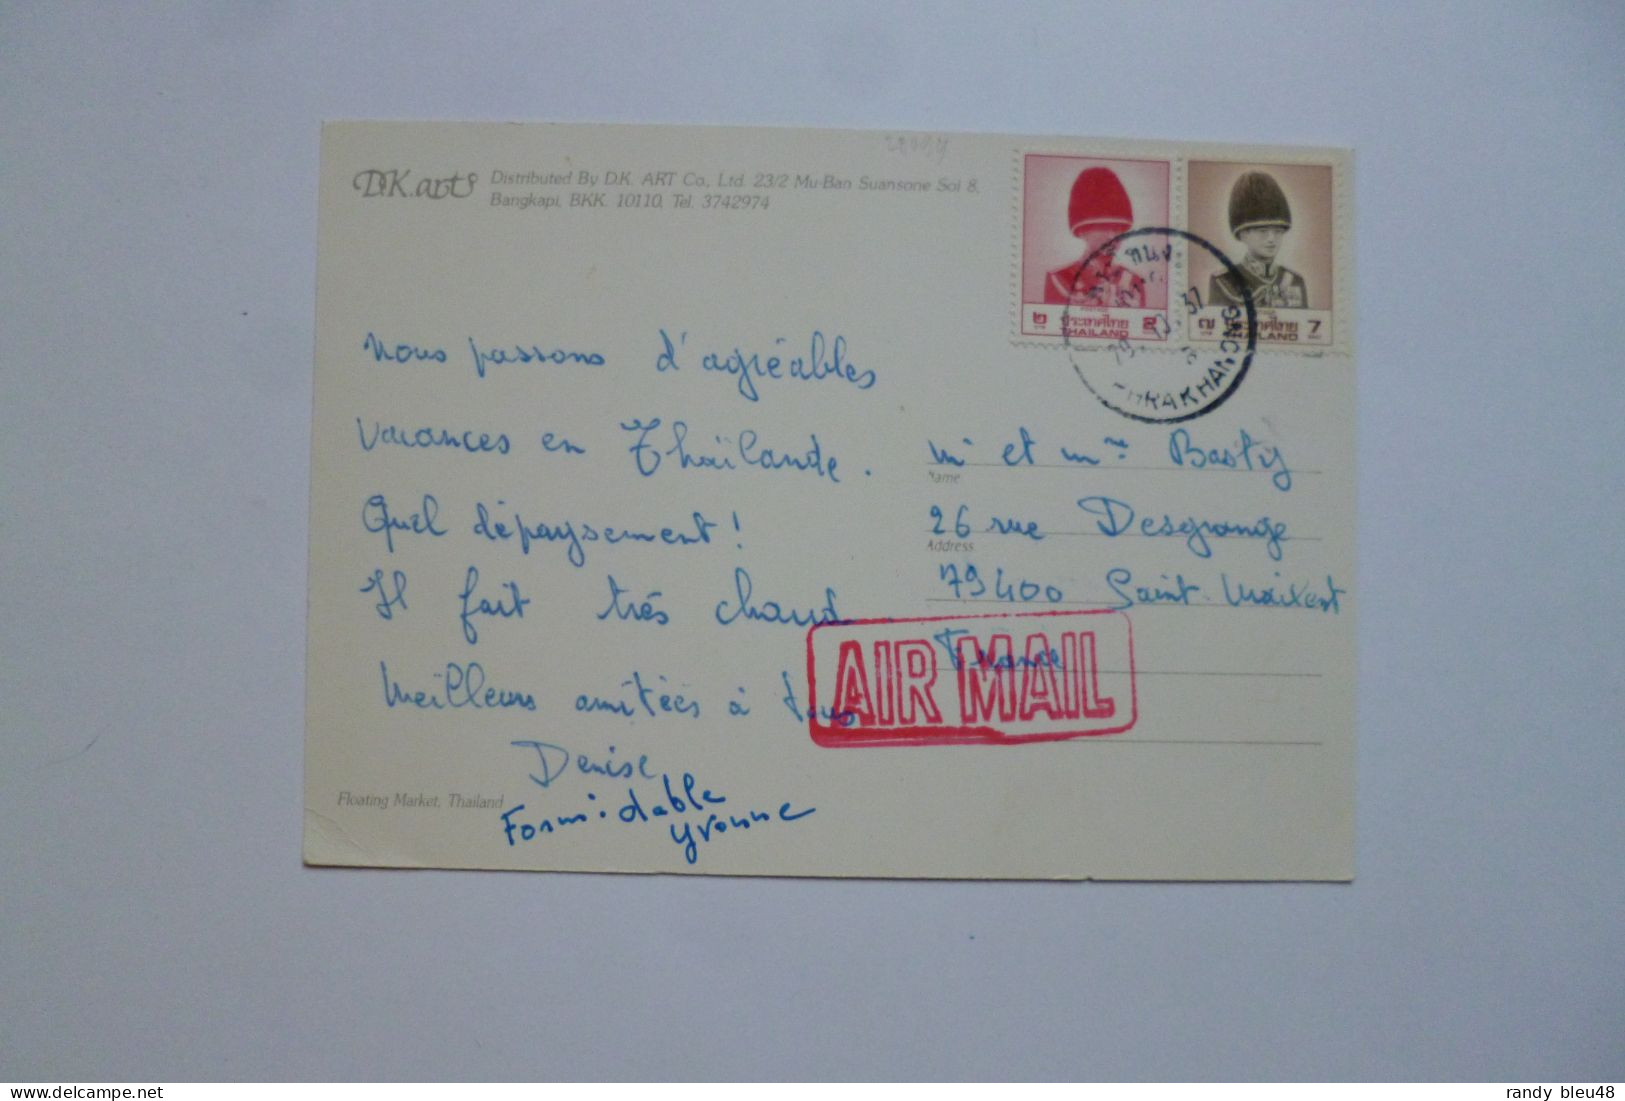 D.K. arts
Distributed By D.K. ART Co., Ltd. 23/2 Mu-Ban Suansone Soi 8,
Bangkapi, BKK. 10110, Tel. 3742974
๒ ประเทศไทย 2
THAILAND
๗ ประเทศไทย 7
THAILAND
PHRAKHANONG
nous passons d'agréables
vacances en Thaïlande.
Quel dépaysement !
Il fait très chaud
Meilleurs amitiées à tous
Denise
Formidable
Yvonne
Mr et Mme Basty
Name
26 rue Desgrange
Address
79400 Saint Maixent
France
AIR MAIL
Floating Market, Thailand
randy bleu48